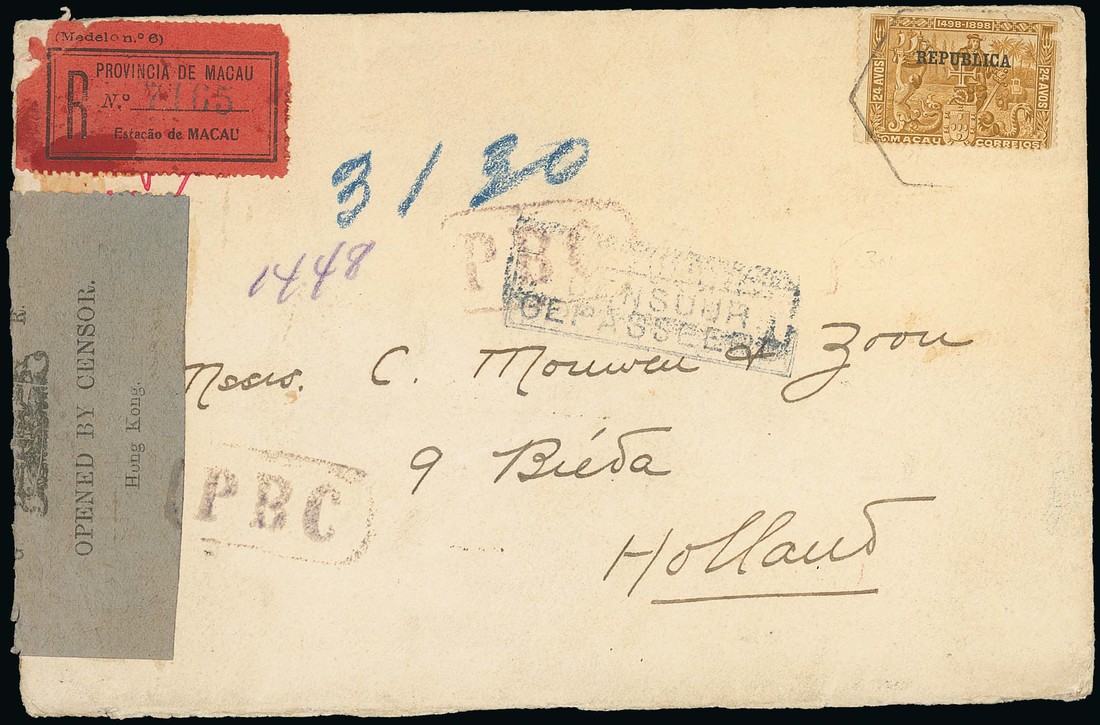 (Modelo n.º 6)
PROVINCIA DE MACAU
R
N.º 7165
Estação de MACAU
1498-1898
REPUBLICA
24 AVOS
24 AVOS
MACAU
CORREIOS
3/20
1448
PBC
CENSUUR
GEPASSEERD
Messrs. C. Mouwen & Zoon
9 Biéda
Holland
PBC
OPENED BY CENSOR.
Hong Kong.
G R.